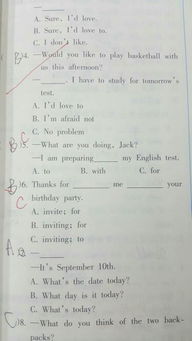 —
A. Sure, I'd love.
B. Sure, I'd love to.
C. I don't like.
B )4. —Would you like to play basketball with
us this afternoon?
—______. I have to study for tomorrow's
test.
A. I'd love to
B. I'm afraid not
C. No problem
B C )5. —What are you doing, Jack?
—I am preparing______ my English test.
A. to B. with C. for
B )6. Thanks for ______ me ______ your
C birthday party.
A. invite; for
B. inviting; for
C. inviting; to
A —______
—It's September 10th.
A. What's the date today?
B. What day is it today?
C. What's today?
C )8. —What do you think of the two back-
packs?